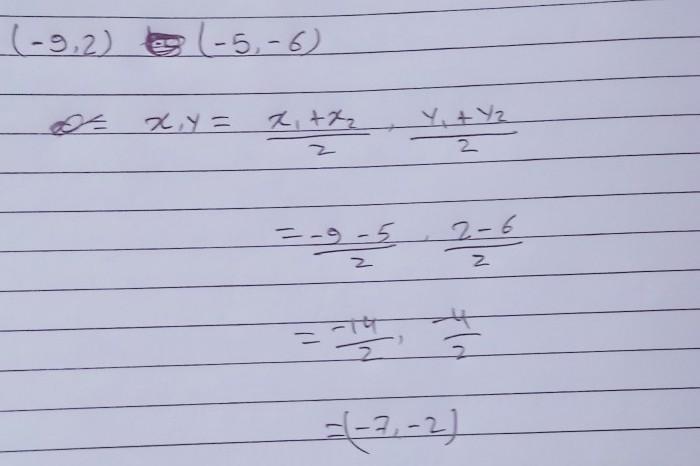 (-9,2) (-5,-6)
x,y = x₁+x₂/2, y₁+y₂/2
= -9-5/2, 2-6/2
= -14/2, -4/2
=(-7,-2)